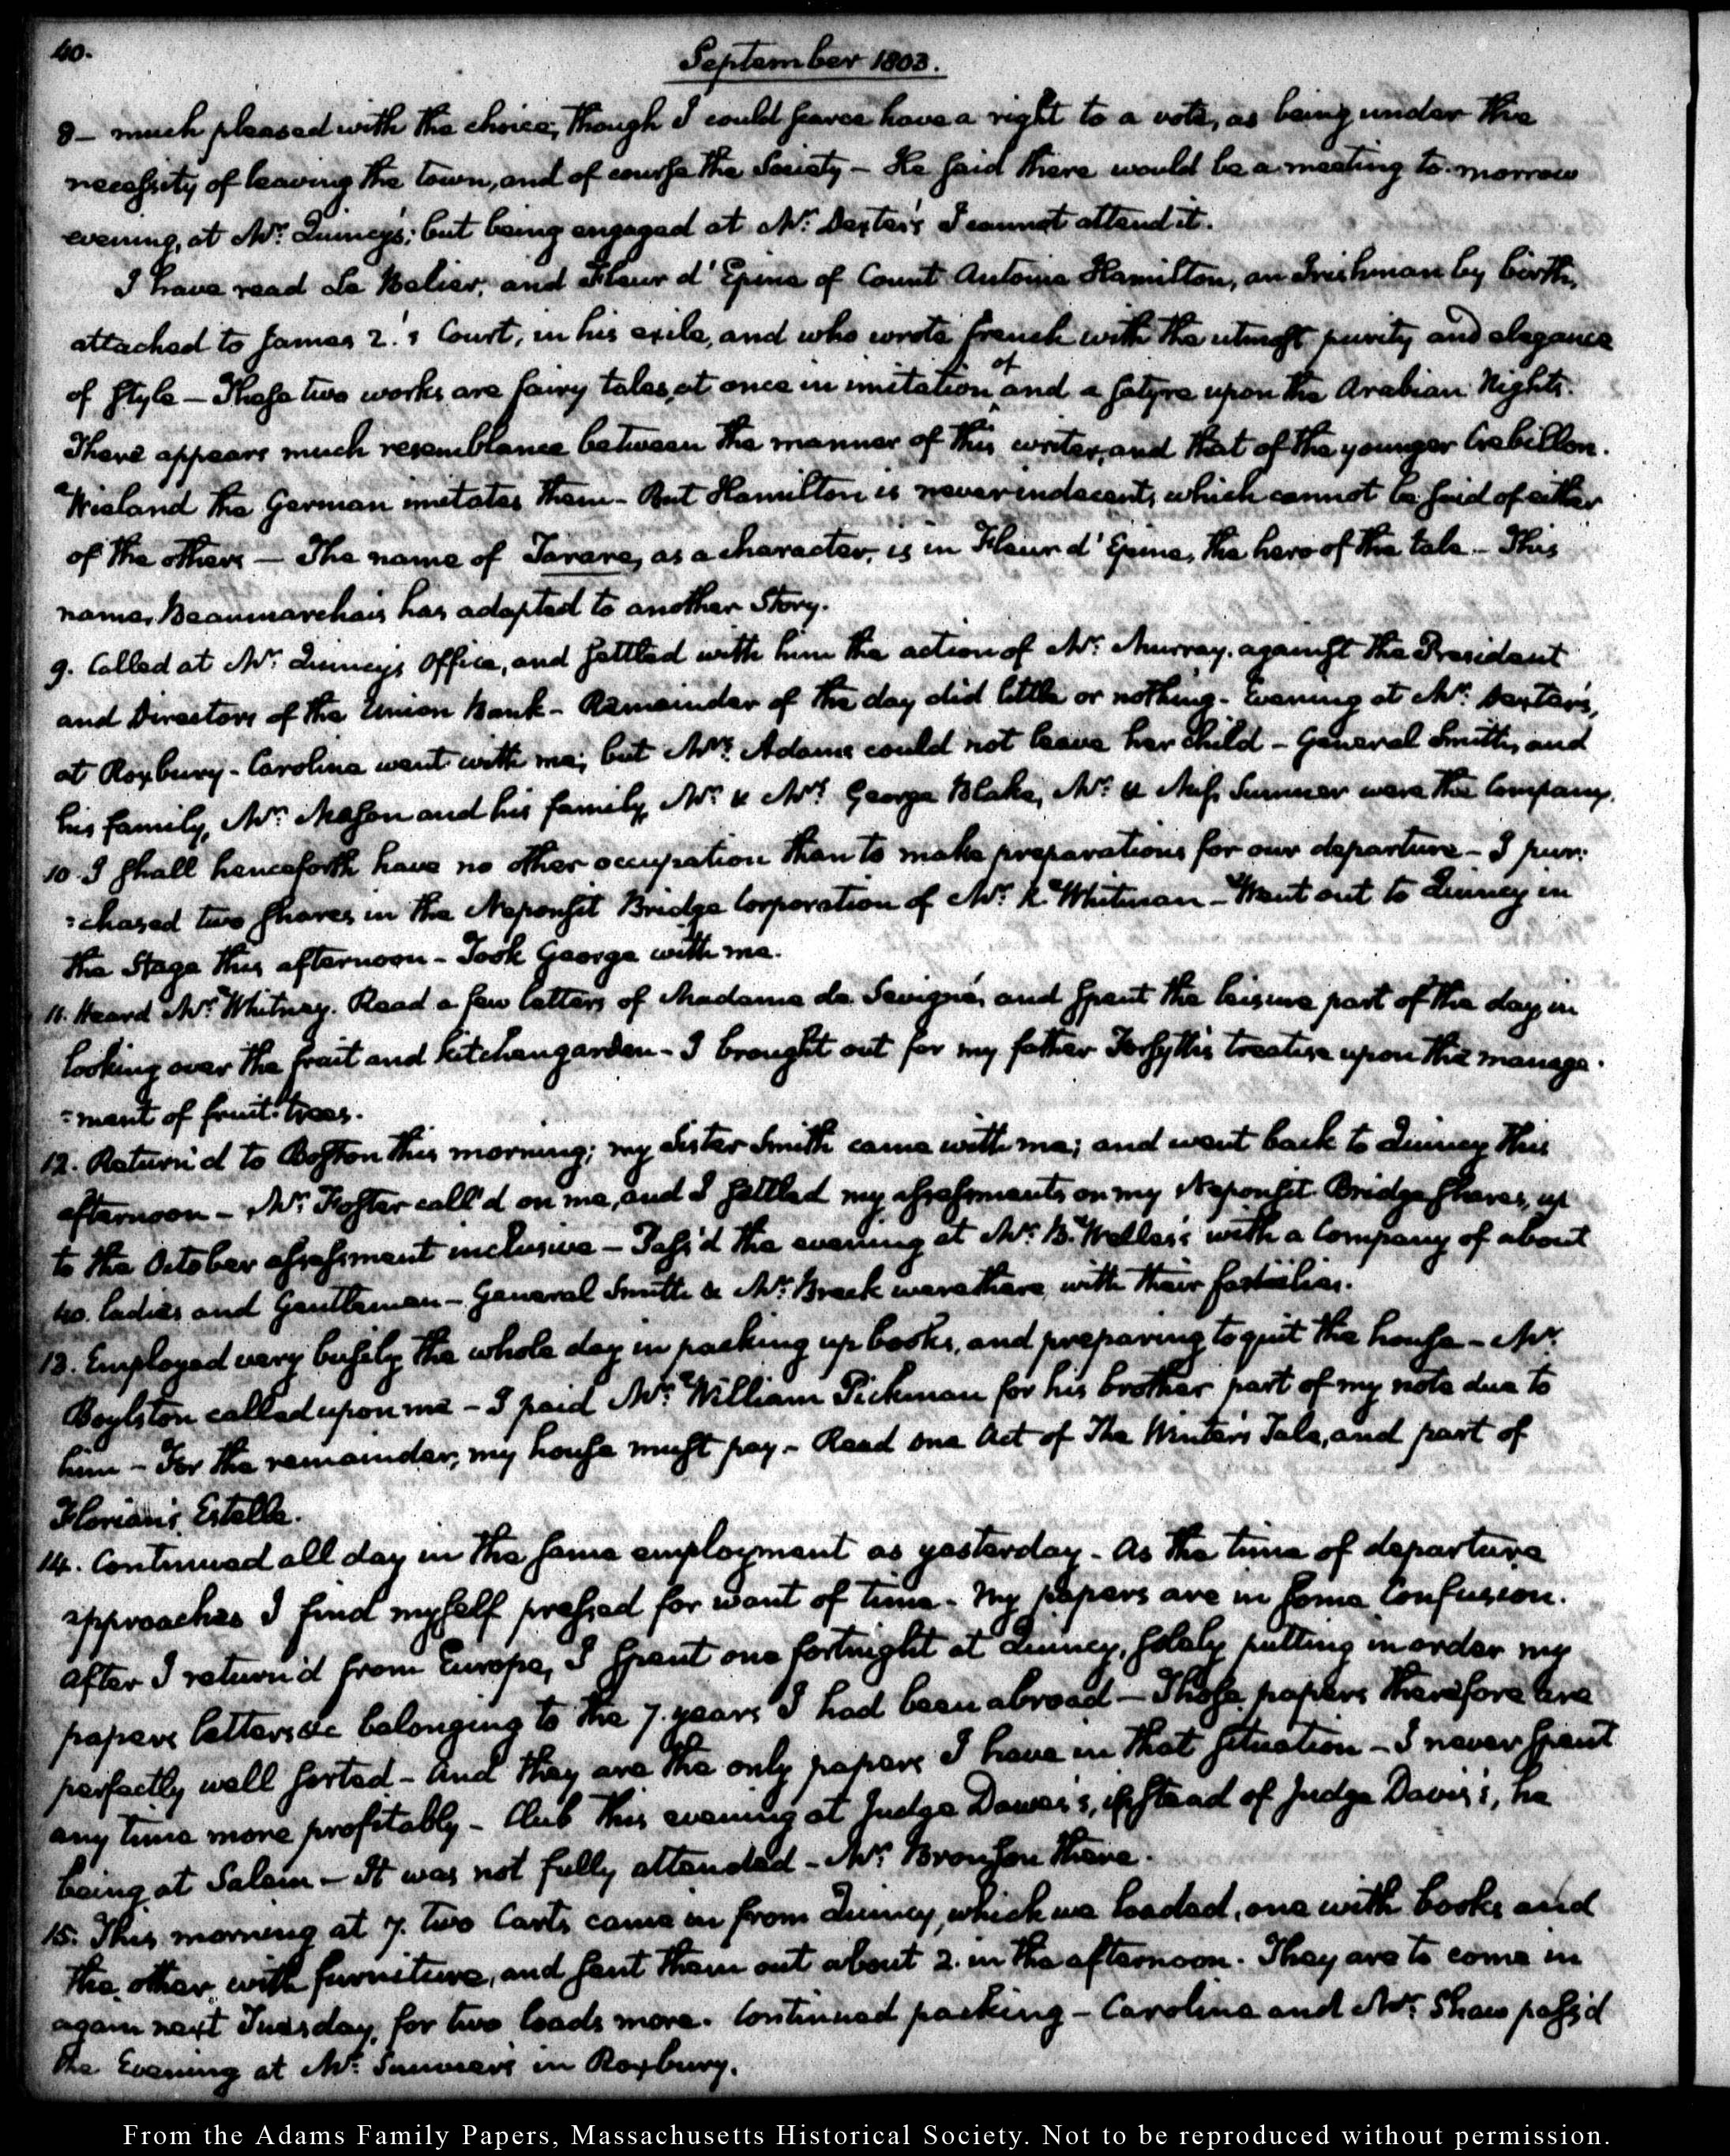 40.
September 1803.
8 — much pleased with the choice, though I could scarce have a right to a vote, as being under the
necessity of leaving the town, and of course the Society — He said there would be a meeting to-morrow
evening, at Mr: Quincy's; but being engaged at Mr: Dexter's I cannot attend it.
I have read Le Belier, and Fleur d'Epine of Count Antoine Hamilton, an Irishman by birth,
attached to James 2.'s Court, in his exile, and who wrote french with the utmost purity and elegance
of style — These two works are fairy tales, at once in imitation of and a satyre upon the Arabian Nights.
There appears much resemblance between the manner of this writer, and that of the younger Crebillon.
Wieland the German imitates them — But Hamilton is never indecent, which cannot be said of either
of the others — The name of Tarare, as a character, is in Fleur d'Epine, the hero of the tale — This
name, Beaumarchais has adapted to another Story.
9. Called at Mr: Quincy's Office, and settled with him the action of Mr: Murray, against the President
and Directors of the Union Bank — Remainder of the day did little or nothing — Evening at Mr: Dexter's,
at Roxbury — Caroline went with me; but Mrs: Adams could not leave her child — General Smith, and
his family, Mr: Mason and his family, Mr: & Mrs: George Blake, Mr: & Miss Sumner were the Company.
10. I shall henceforth have no other occupation than to make preparations for our departure — I pur:
:chased two shares in the Neponsit Bridge Corporation of Mr: K. Whitman — Went out to Quincy in
the Stage this afternoon — Took George with me.
11. Heard Mr: Whitney. Read a few letters of Madame de Sevigné, and spent the leisure part of the day in
looking over the fruit and kitchen garden — I brought out for my father Forsyth's treatise upon the manage:
:ment of fruit-trees.
12. Return'd to Boston this morning; my Sister Smith came with me; and went back to Quincy this
afternoon — Mr: Foster call'd on me, and I settled my assessments on my Neponsit Bridge shares, up
to the October assessment inclusive — Pass'd the evening at Mr: B. Welles's with a Company of about
40. ladies and Gentlemen — General Smith & Mr: Breck were there, with their families.
13. Employed very busily the whole day in packing up books, and preparing to quit the house — Mr:
Boylston called upon me — I paid Mr: William Pickman for his brother part of my note due to
him — For the remainder, my house must pay — Read one Act of The Winter's Tale, and part of
Florian's Estelle.
14. Continued all day in the same employment as yesterday — As the time of departure
approaches I find myself pressed for want of time — My papers are in some confusion.
After I return'd from Europe, I spent one fortnight at Quincy, solely putting in order my
papers letters &c belonging to the 7. years I had been abroad — Those papers therefore are
perfectly well sorted — And they are the only papers I have in that situation — I never spent
any time more profitably — Club this evening at Judge Dawes's, instead of Judge Davis's, he
being at Salem — It was not fully attended — Mr: Bronson there.
15. This morning at 7. two Carts came in from Quincy, which we loaded, one with books and
the other with furniture, and sent them out about 2. in the afternoon. They are to come in
again next Tuesday, for two loads more. Continued packing — Caroline and Mr: Shaw pass'd
the Evening at Mr: Sumner's in Roxbury.
From the Adams Family Papers, Massachusetts Historical Society. Not to be reproduced without permission.